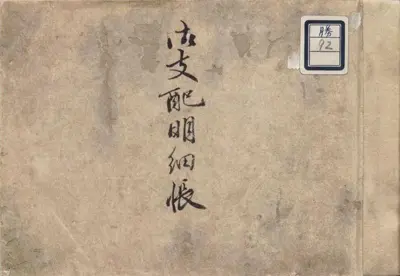 御支配明細帳
勝
92